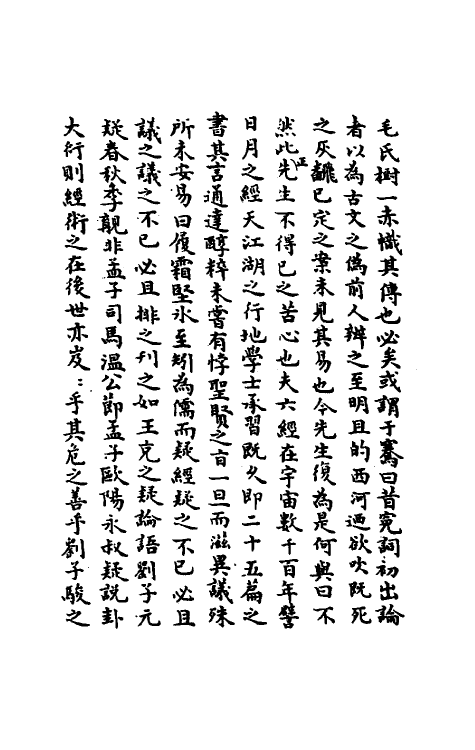 毛氏樹一赤幟其傳也必矣或謂于騫曰昔寃詞初出論
者以為古文之偽前人辨之至明且的西河迺欲吹既死
之灰翻已定之案未見其易也今先生復為是何與曰不
然此正先生不得已之苦心也夫六經在宇宙數千百年譬
日月之經天江湖之行地學士承習既久即二十五篇之
書其言通達醇粹未嘗有悖聖賢之旨一旦而滋異議殊
所未安易曰履霜堅冰至矧為儒而疑經疑之不已必且
議之議之不已必且排之刋之如王充之疑論語劉子元
疑春秋李覯非孟子司馬溫公節孟子歐陽永叔疑說卦
大行則經術之在後世亦岌:乎其危之善乎劉子駿之